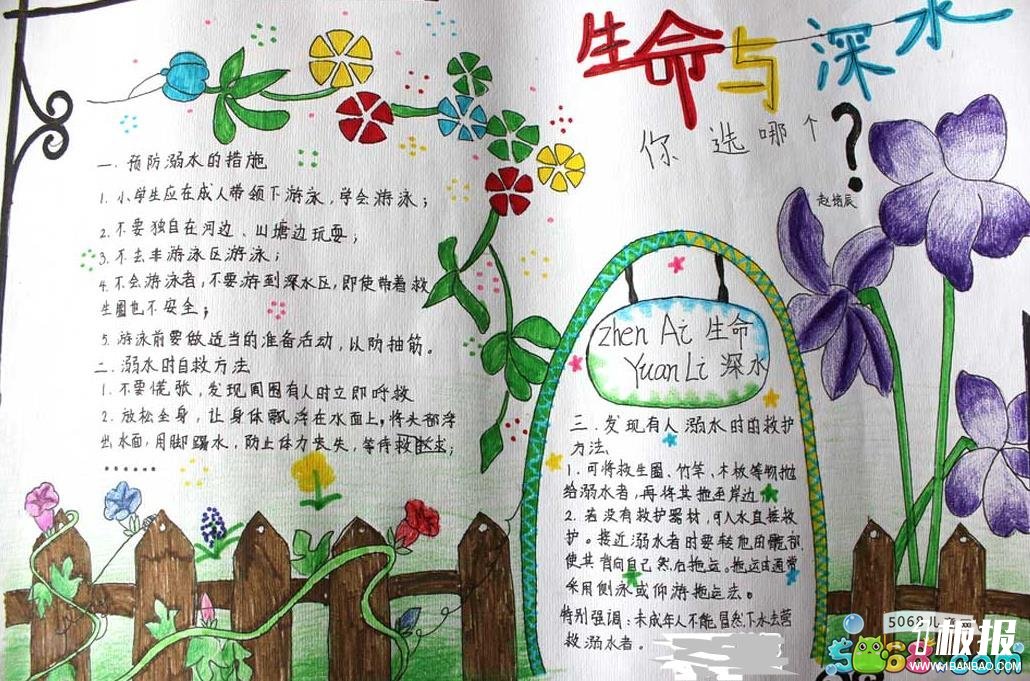 生命与深水
你选哪个?
赵培辰
一.预防溺水的措施
1.小学生应在成人带领下游泳,学会游泳;
2.不要独自在河边、山塘边玩耍;
3.不去非游泳区游泳;
4.不会游泳者,不要游到深水区,即使带着救
生圈也不安全;
5.游泳前要做适当的准备活动,以防抽筋。
二.溺水时自救方法
1.不要慌张,发现周围有人时立即呼救
2.放松全身,让身体飘浮在水面上,将头部浮
出水面,用脚踢水,防止体力丧失,等待救
......
zhen Ai 生命
Yuan Li 深水
三.发现有人溺水时的救护
方法.
1.可将救生圈、竹竿、木板等物抛
给溺水者,再将其拖至岸边
2.若没有救护器材,可入水直接救
护。接近溺水者时要转他的髋部,
使其背向自己然后拖运。拖运时通常
采用侧泳或仰游拖运法。
特别强调:未成年人不能冒然下水去营
救溺水者。
板报
WWW.1BANBAO.COM